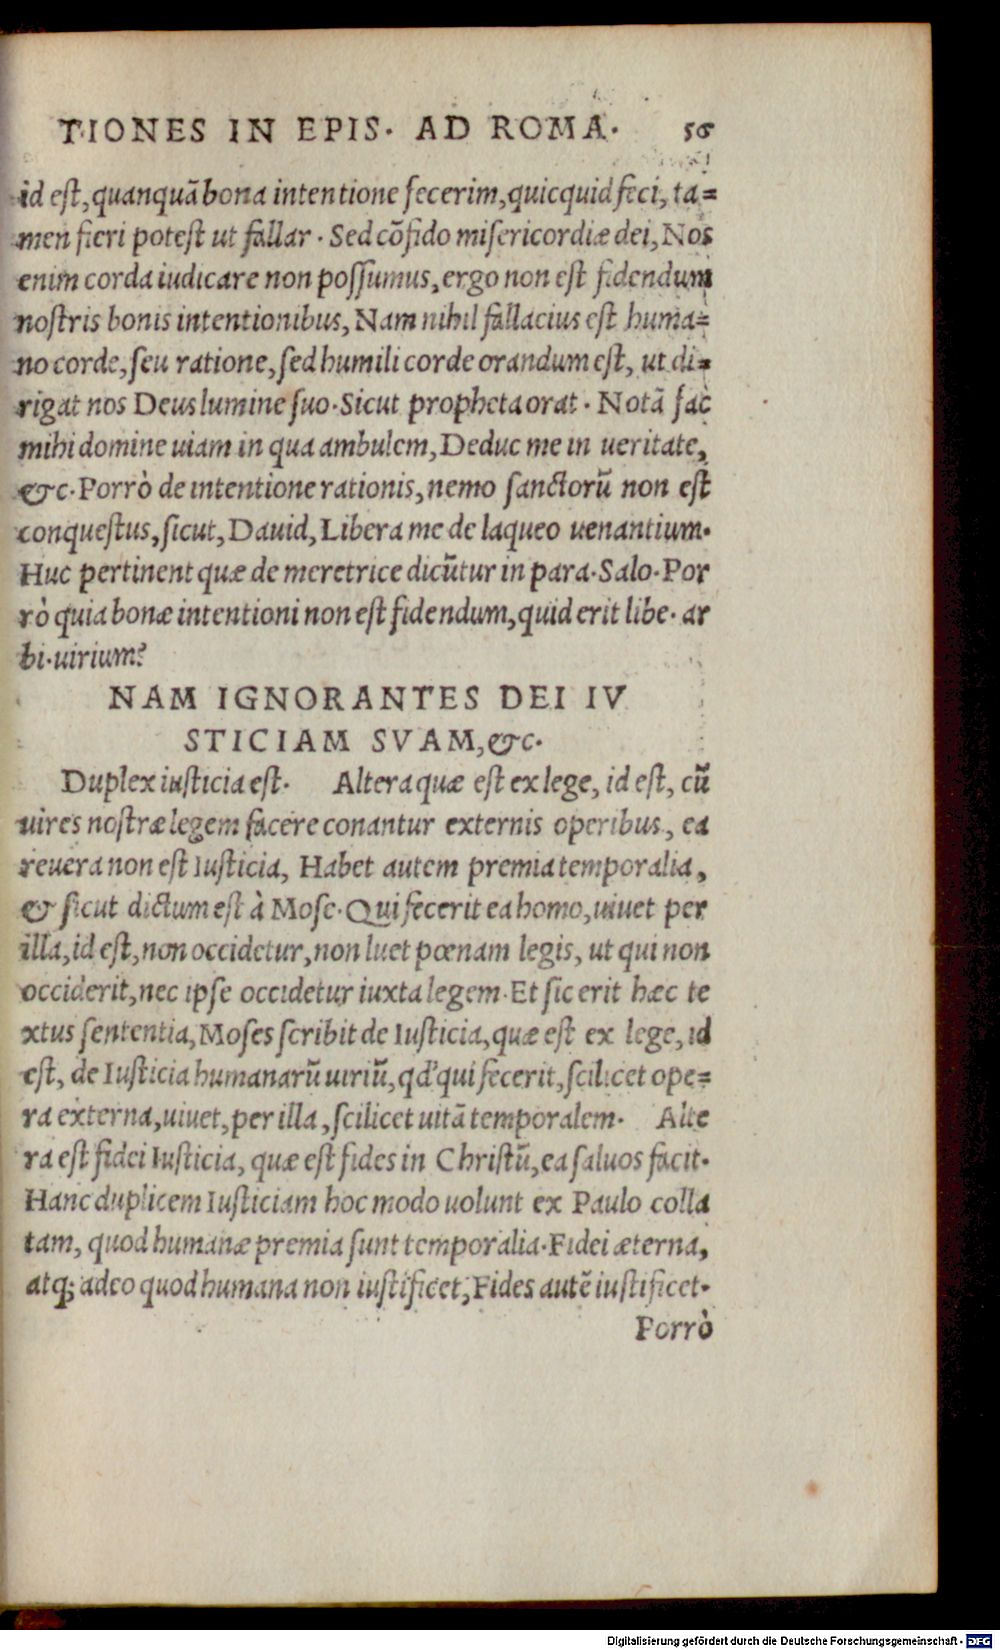 TIONES IN EPIS. AD ROMA. 56
id est, quanquã bona intentione fecerim, quicquid feci, ta=
men fieri potest ut fallar. Sed cõfido misericordiæ dei, Nos
enim corda iudicare non possumus, ergo non est fidendum
nostris bonis intentionibus, Nam nihil fallacius est huma=
no corde, seu ratione, sed humili corde orandum est, ut di=
rigat nos Deus lumine suo. Sicut propheta orat. Notã fac
mihi domine uiam in qua ambulem, Deduc me in ueritate,
&c. Porrò de intentione rationis, nemo sanctorũ non est
conquestus, sicut, Dauid, Libera me de laqueo uenantium.
Huc pertinent quæ de meretrice dicũtur in para. Salo. Por
rò quia bonæ intentioni non est fidendum, quid erit libe. ar
bi. uirium?
NAM IGNORANTES DEI IV
STICIAM SVAM, &c.
Duplex iusticia est. Altera quæ est ex lege, id est, cũ
uires nostræ legem facere conantur externis operibus, ea
reuera non est Iusticia, Habet autem premia temporalia,
& sicut dictum est à Mose. Qui fecerit ea homo, uiuet per
illa, id est, non occidetur, non luet pœnam legis, ut qui non
occiderit, nec ipse occidetur iuxta legem. Et sic erit hæc te
xtus sententia, Moses scribit de Iusticia, quæ est ex lege, id
est, de Iusticia humanarũ uiriũ, qd' qui fecerit, scilicet ope=
ra externa, uiuet, per illa, scilicet uitã temporalem. Alte
ra est fidei Iusticia, quæ est fides in Christũ, ea saluos facit.
Hanc duplicem Iusticiam hoc modo uolunt ex Paulo colla
tam, quod humanæ premia sunt temporalia. Fidei æterna,
atq; adeo quod humana non iustificet, Fides autẽ iustificet.
Porrò
Digitalisierung gefördert durch die Deutsche Forschungsgemeinschaft - DFG